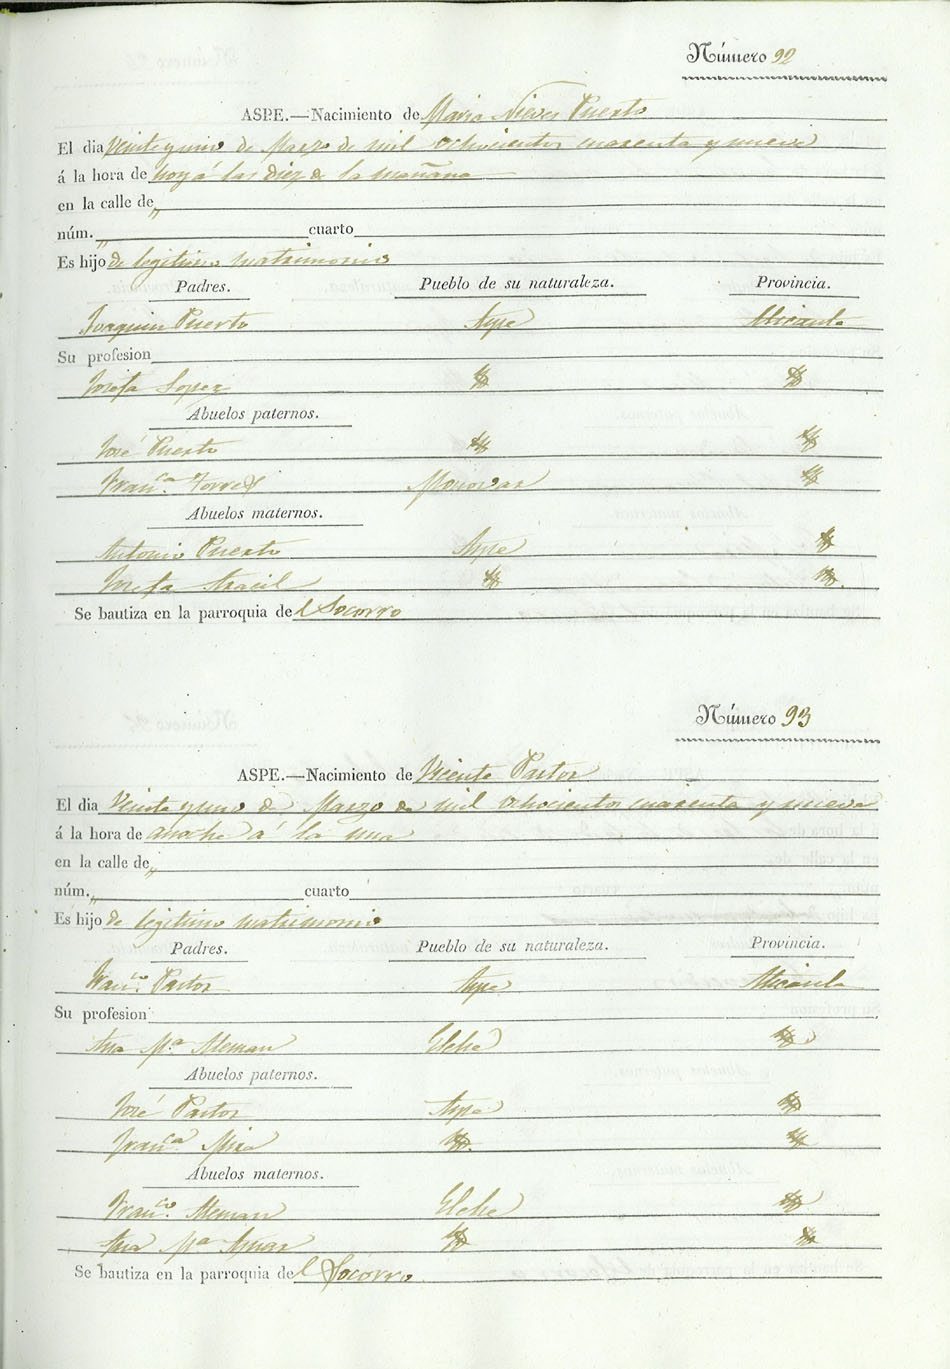 Número 92
ASPE.—Nacimiento de Maria Nieves Puerto
El dia veinte y uno de Marzo de mil ochocientos cuarenta y nueve
á la hora de hoy á las diez de la mañana
en la calle de „
núm. „ cuarto
Es hijo de legitimo matrimonio
Padres. Pueblo de su naturaleza. Provincia.
Joaquin Puerto Aspe Alicante
Su profesion
Josefa Lopez
Abuelos paternos.
José Puerto
Fran.ca Torres Monovar
Abuelos maternos.
Antonio Puerto Aspe
Josefa
Se bautiza en la parroquia del Socorro
Número 93
ASPE.—Nacimiento de Vicente Pastor
El dia veinte y uno de Marzo de mil ochocientos cuarenta y nueve
á la hora de anoche á la una
en la calle de „
núm. „ cuarto
Es hijo de legitimo matrimonio
Padres. Pueblo de su naturaleza. Provincia.
Fran.co Pastor Aspe Alicante
Su profesion
Ana M.a Aleman Elche
Abuelos paternos.
José Pastor Aspe
Fran.ca Mira
Abuelos maternos.
Fran.co Aleman Elche
Ana M.a
Se bautiza en la parroquia del Socorro